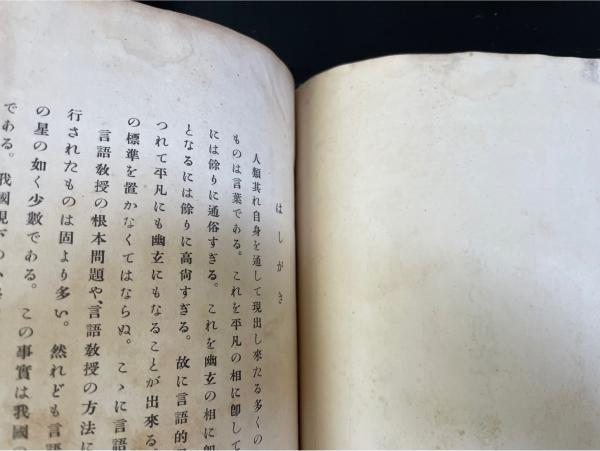 はしがき
人類其れ自身を通して現出し來たる多くの
ものは言葉である。これを平凡の相に卽して
には餘りに通俗すぎる。これを幽玄の相に卽
となるには餘りに高尙すぎる。故に言語的
つれて平凡にも幽玄にもなることが出來る。
の標準を置かなくてはならぬ。こゝに言語
言語敎授の根本問題や、言語敎授の方法に
行されたものは固より多い。然れども言語
の星の如く少數である。この事實は我國
である。我國現下の